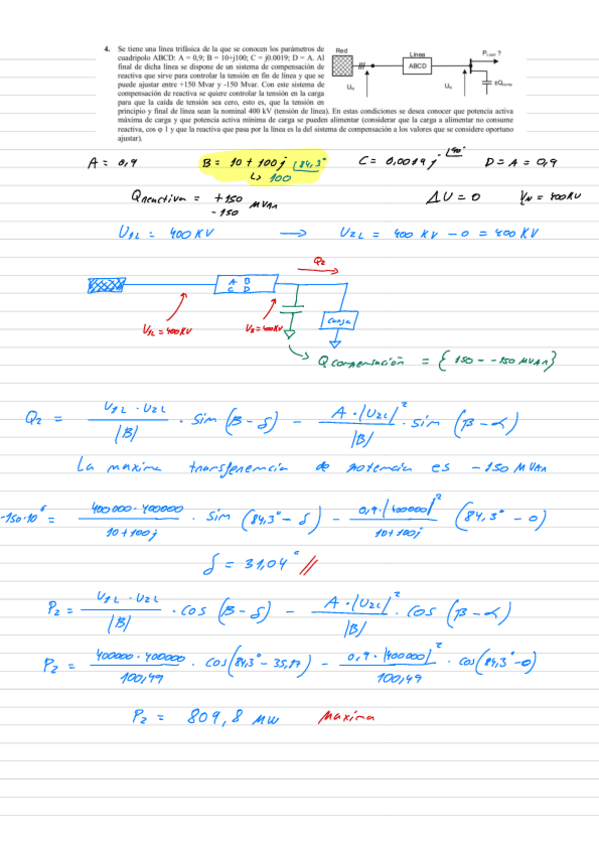 4. Se tiene una línea trifásica de la que se conocen los parámetros de
cuadripolo ABCD: A = 0,9; B = 10+j100; C = j0.0019; D = A. Al
final de dicha línea se dispone de un sistema de compensación de
reactiva que sirve para controlar la tensión en fin de línea y que se
puede ajustar entre +150 Mvar y -150 Mvar. Con este sistema de
compensación de reactiva se quiere controlar la tensión en la carga
para que la caída de tensión sea cero, esto es, que la tensión en
principio y final de línea sean la nominal 400 kV (tensión de línea). En estas condiciones se desea conocer que potencia activa
máxima de carga y que potencia activa mínima de carga se pueden alimentar (considerar que la carga a alimentar no consume
reactiva, cos φ 1 y que la reactiva que pasa por la línea es la del sistema de compensación a los valores que se considere oportuno
ajustar).
Red
Línea
ABCD
P_CARGA ?
±Q_comp
A = 0,9 B = 10 + 100j |84,3° C = 0,0019j |90° D = A = 0,9
↳ 100
Qreactiva = +150 MVAr ΔU = 0 VN = 400KV
-150
U1L = 400 KV → U2L = 400 KV - 0 = 400 KV
Q2
A B
C D
Carga
U1L = 400KV
V2 = 400KV
Qcompensación = {150 -- -150 MVAr}
Q2 = U1L · U2L / |B| · sin (β - δ) - A · |U2L|² / |B| · sin (β - α)
La maxima transferencia de potencia es -150 MVAr
-150·10⁶ = 400000 · 400000 / 10 + 100j · sin (84,3° - δ) - 0,9 · |400000|² / 10 + 100j (84,3° - 0)
δ = 31,04° //
P2 = U1L · U2L / |B| · cos (β - δ) - A · |U2L|² / |B| · cos (β - α)
P2 = 400000 · 400000 / 100,49 · cos(84,3° - 35,17) - 0,9 · |400000|² / 100,49 · cos(84,3° - 0)
P2 = 809,8 MW Maxima